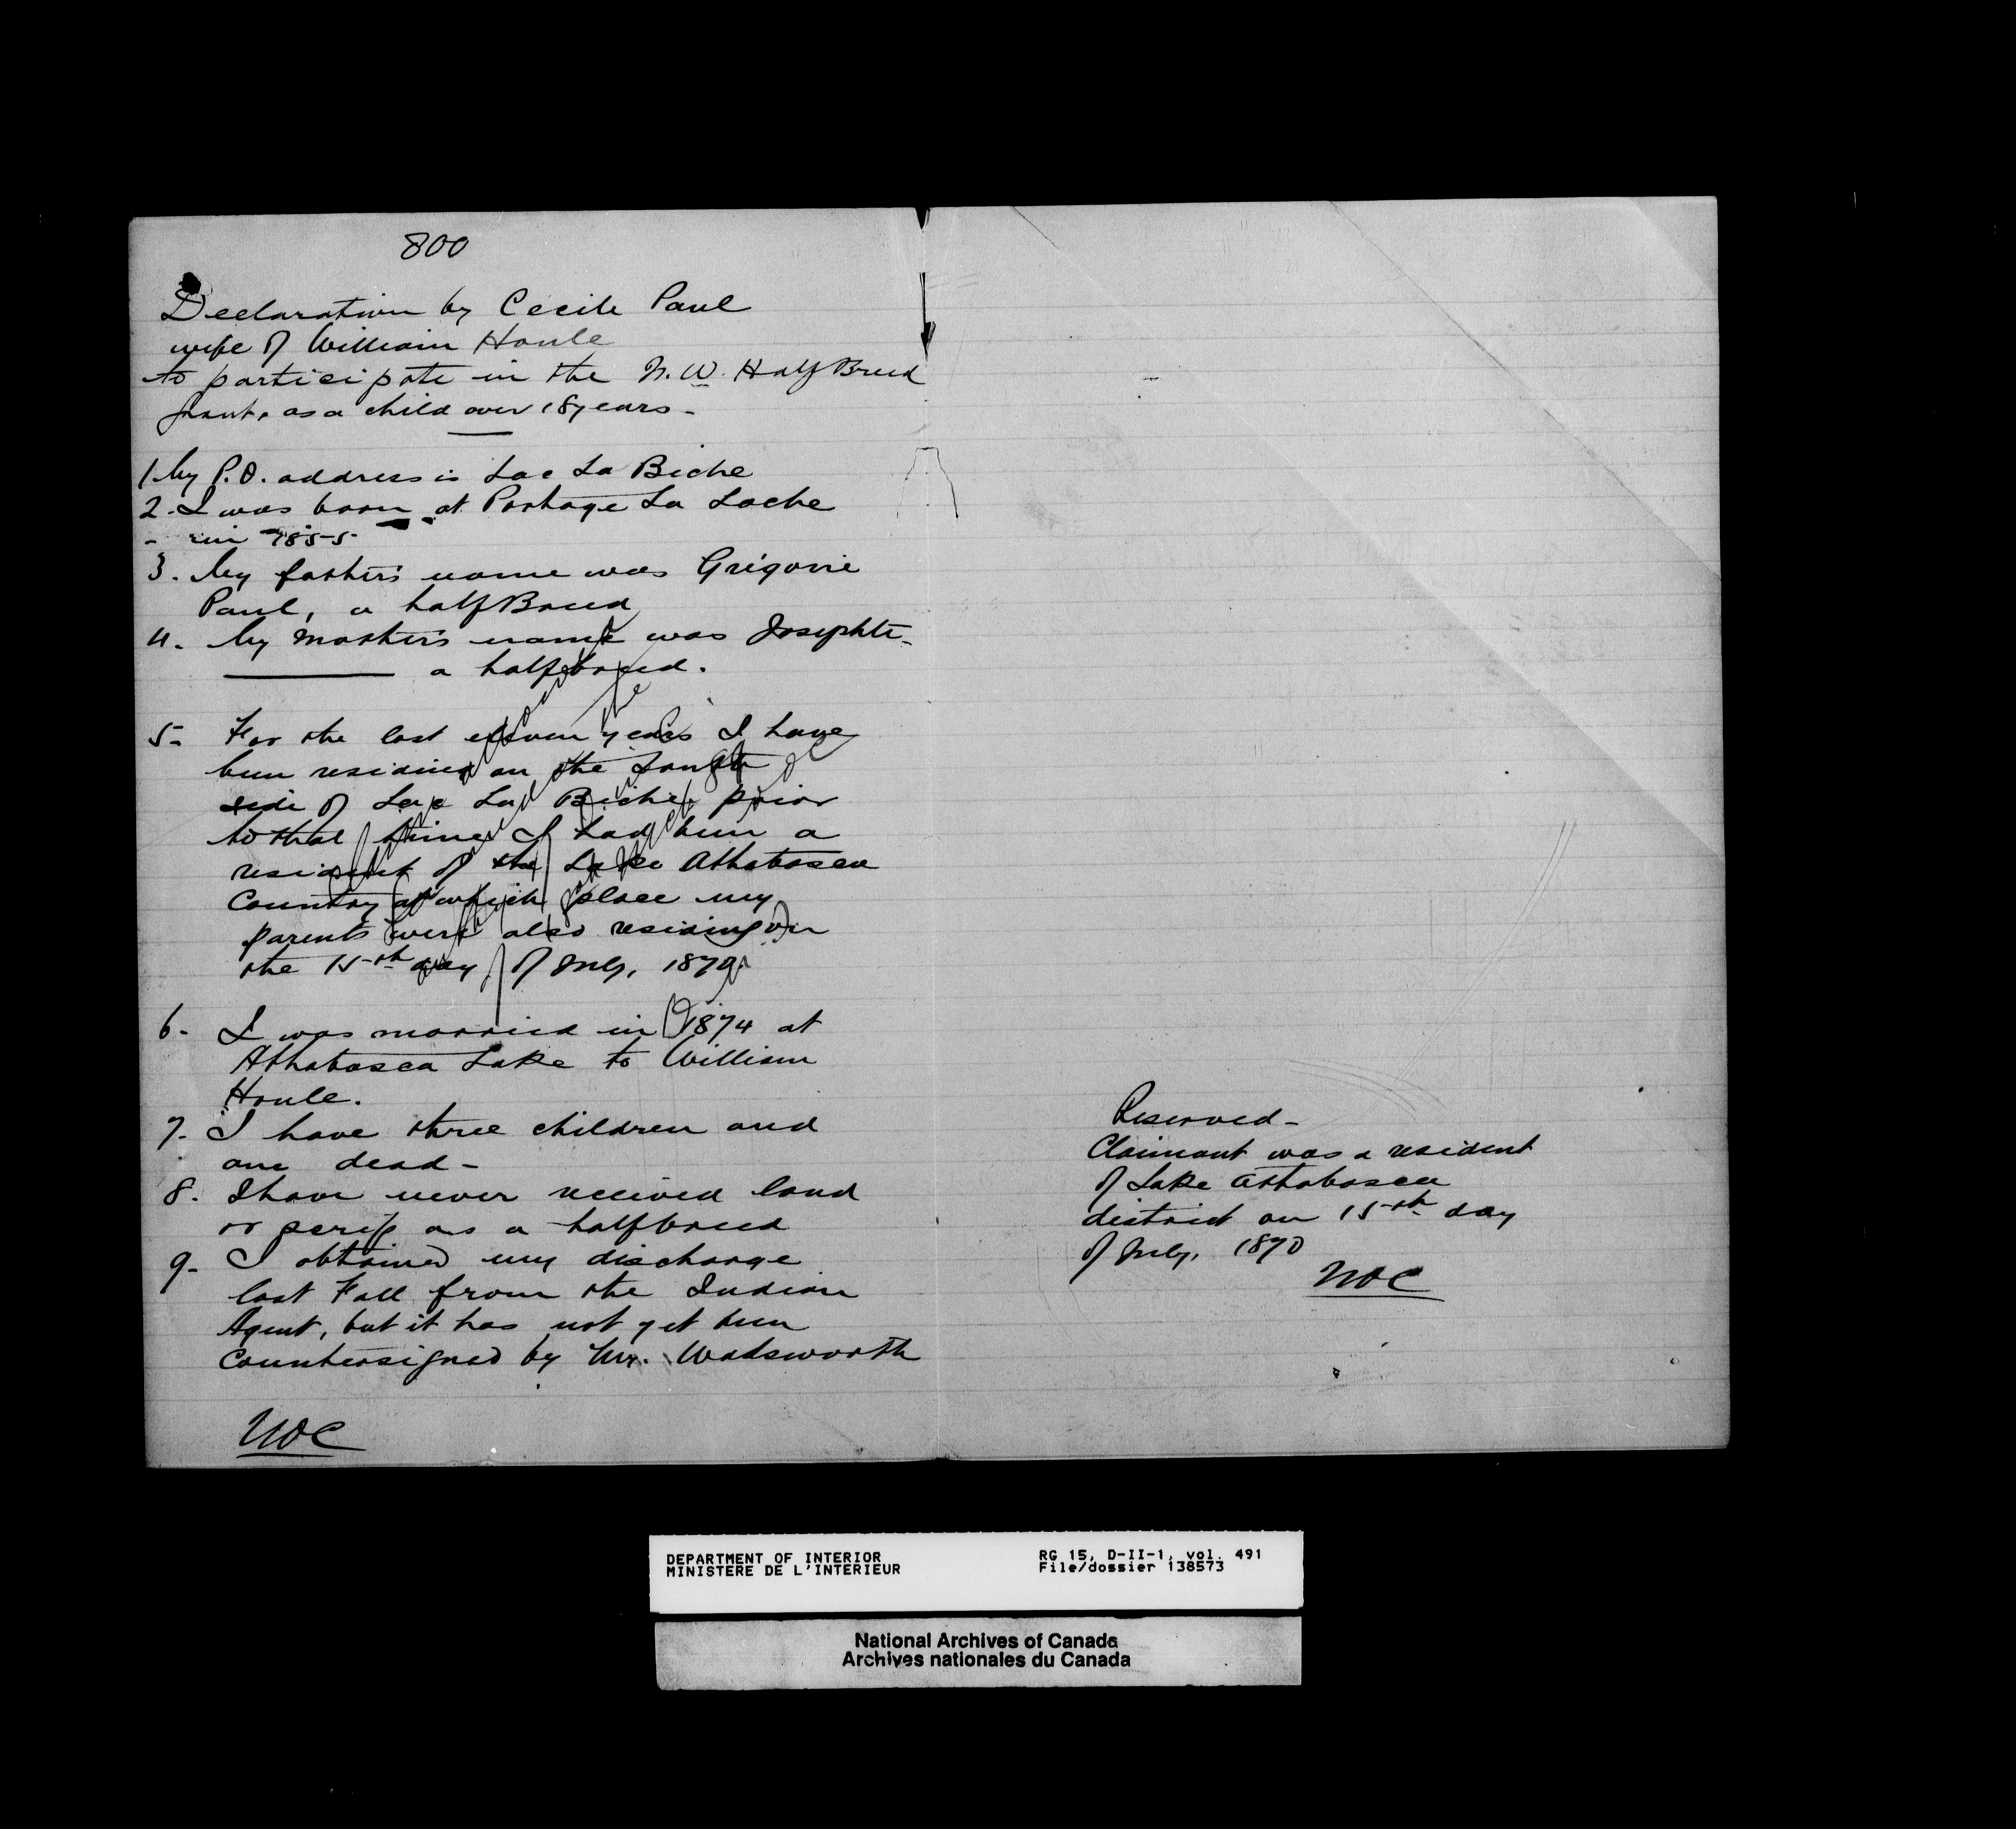 800
Declaration by Cecile Paul
wife of William Houle
to participate in the N.W. Half Breed
grant, as a child over 18 years -
1. My P.O. address is Lac La Biche
2. I was born at Portage La Loche
- in 1855.
3. My father's name was Grégoire
Paul, a half Breed
4. My mother's name was Josephte -
a halfbreed.
5- For the last eleven years I have
been residing on the South
side of Lac La Biche, prior
to that time I had been a
resident of the Lake Athabasca
Country at which place my
parents were also residing on
the 15th day of July, 1870.
6- I was married in 1874 at
Athabasca Lake to William
Houle.
7- I have three children and
one dead -
8. I have never received land
or scrip as a halfbreed
9- I obtained my discharge
last Fall from the Indian
Agent, but it has not yet been
Countersigned by Mr. Wadsworth
NOC
Reserved -
Claimant was a resident
of Lake Athabasca
district on 15th day
of July, 1870
NOC
DEPARTMENT OF INTERIOR
MINISTERE DE L'INTERIEUR
RG 15, D-II-1, vol. 491
File/dossier 138573
National Archives of Canada
Archives nationales du Canada